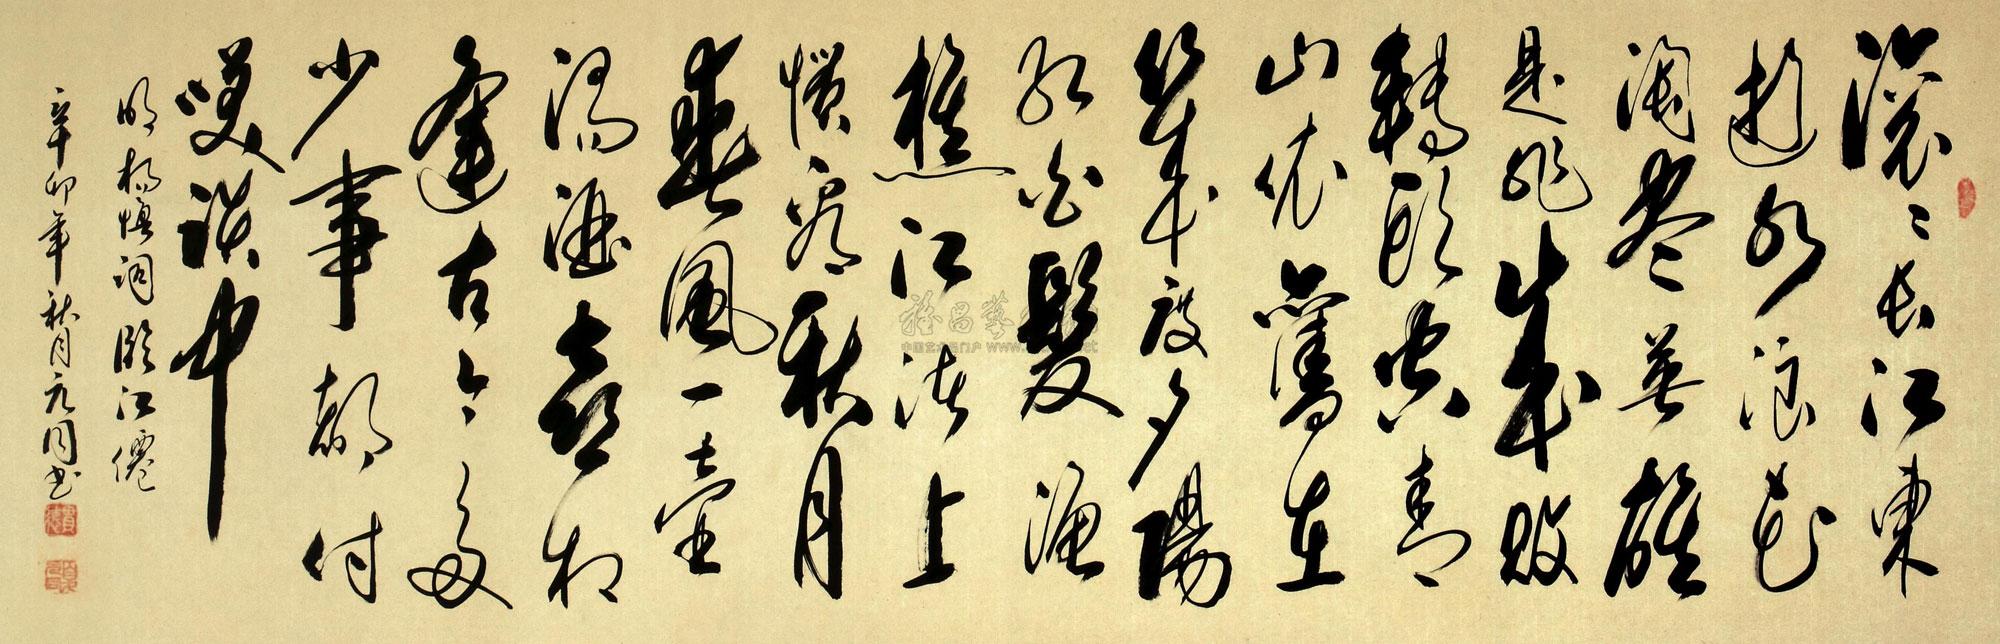 滚〻长江東
逝水浪花
淘尽英雄
是非成敗
轉頭空青
山依舊在
幾度夕陽
红白髮渔
樵江渚上
惯看秋月
春風一壶
濁酒喜相
逢古今多
少事都付
笑談中
明杨慎词临江僊
辛卯年秋月元同书